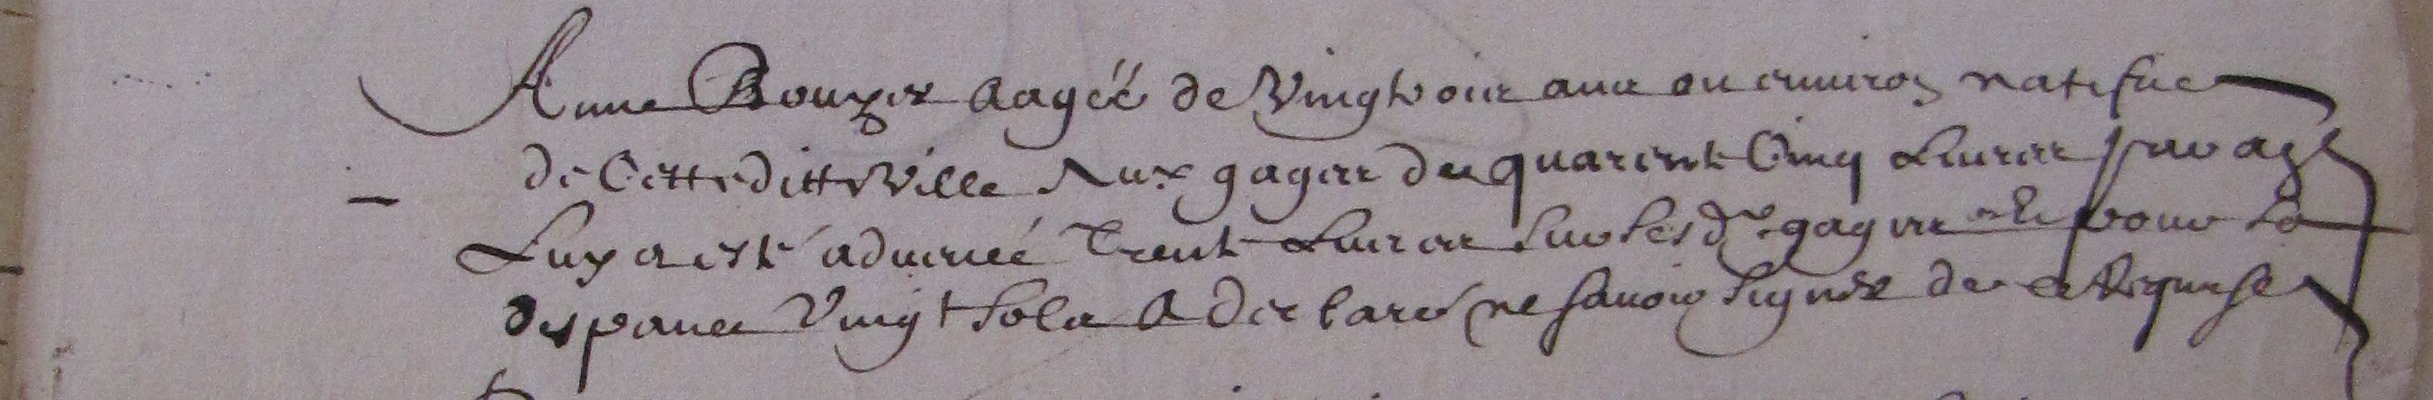 Anne Bouyer aagéé de Vingt ou ans ou environ natifue
de Cette ditte Ville Aux gages de quarente Cinq Liures par an
Luy a esté aduencé Trente Liures sur les dts gages et pour sa
despance Vingt sols A declaré ne sauoir signer de ce Requise